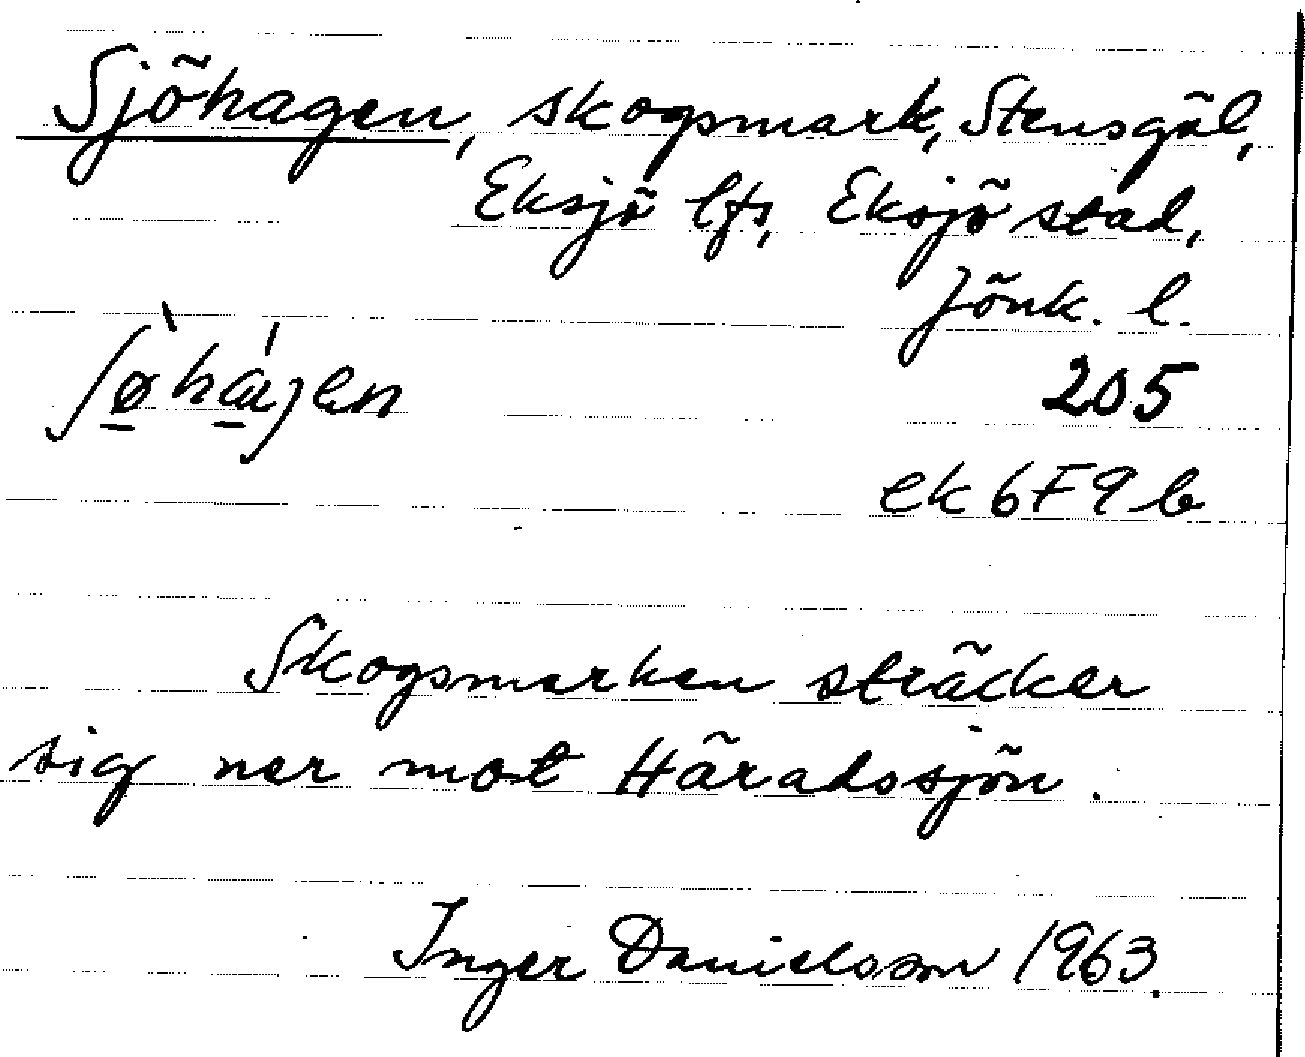 Sjöhagen, skogsmark, Stensgöl,
Eksjö lfs, Eksjö stad,
Jönk. l.
205
ek 6F9b
Skogsmarken sträcker
sig ner mot Häradssjön.
Inger Danielsson 1963.